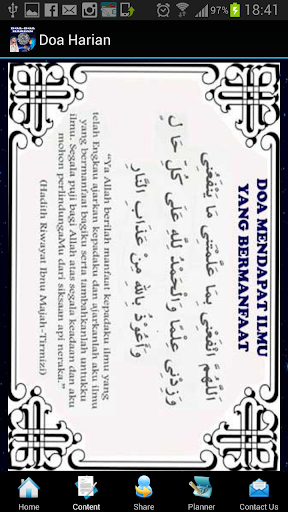 97% 18:41
DOA-DOA HARIAN
Doa Harian
DOA MENDAPAT ILMU
YANG BERMANFAAT
اَللّٰهُمَّ انْفَعْنِى بِمَا عَلَّمْتَنِى مَا يَنْفَعُنِى
وَزِدْنِى عِلْمًا وَالْحَمْدُ لِلّٰهِ عَلَى كُلِّ حَالٍ
وَأَعُوْذُ بِاللهِ مِنْ عَذَابِ النَّارِ
"Ya Allah berilah manfaat kepadaku ilmu yang
telah Engkau ajarkan kepadaku dan ajarkanlah aku ilmu
yang bermanfaat bagiku serta tambahkanlah untukku
ilmu. Segala puji bagi Allah atas segala keadaan dan aku
mohon perlindunganMu dari siksaan api neraka."
(Hadith Riwayat Ibnu Majah-Tirmizi)
Home Content Share Planner Contact Us